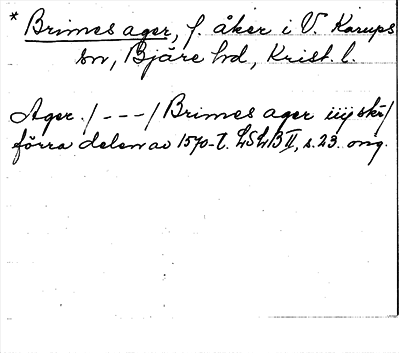 * Brimes ager, f. åker i V. Karups
sn, Bjäre hd, Krist. l.
Ager. / - - - / Brimes ager iiij skr/
förra delen av 1570-t. LSLB II, s. 23. orig.